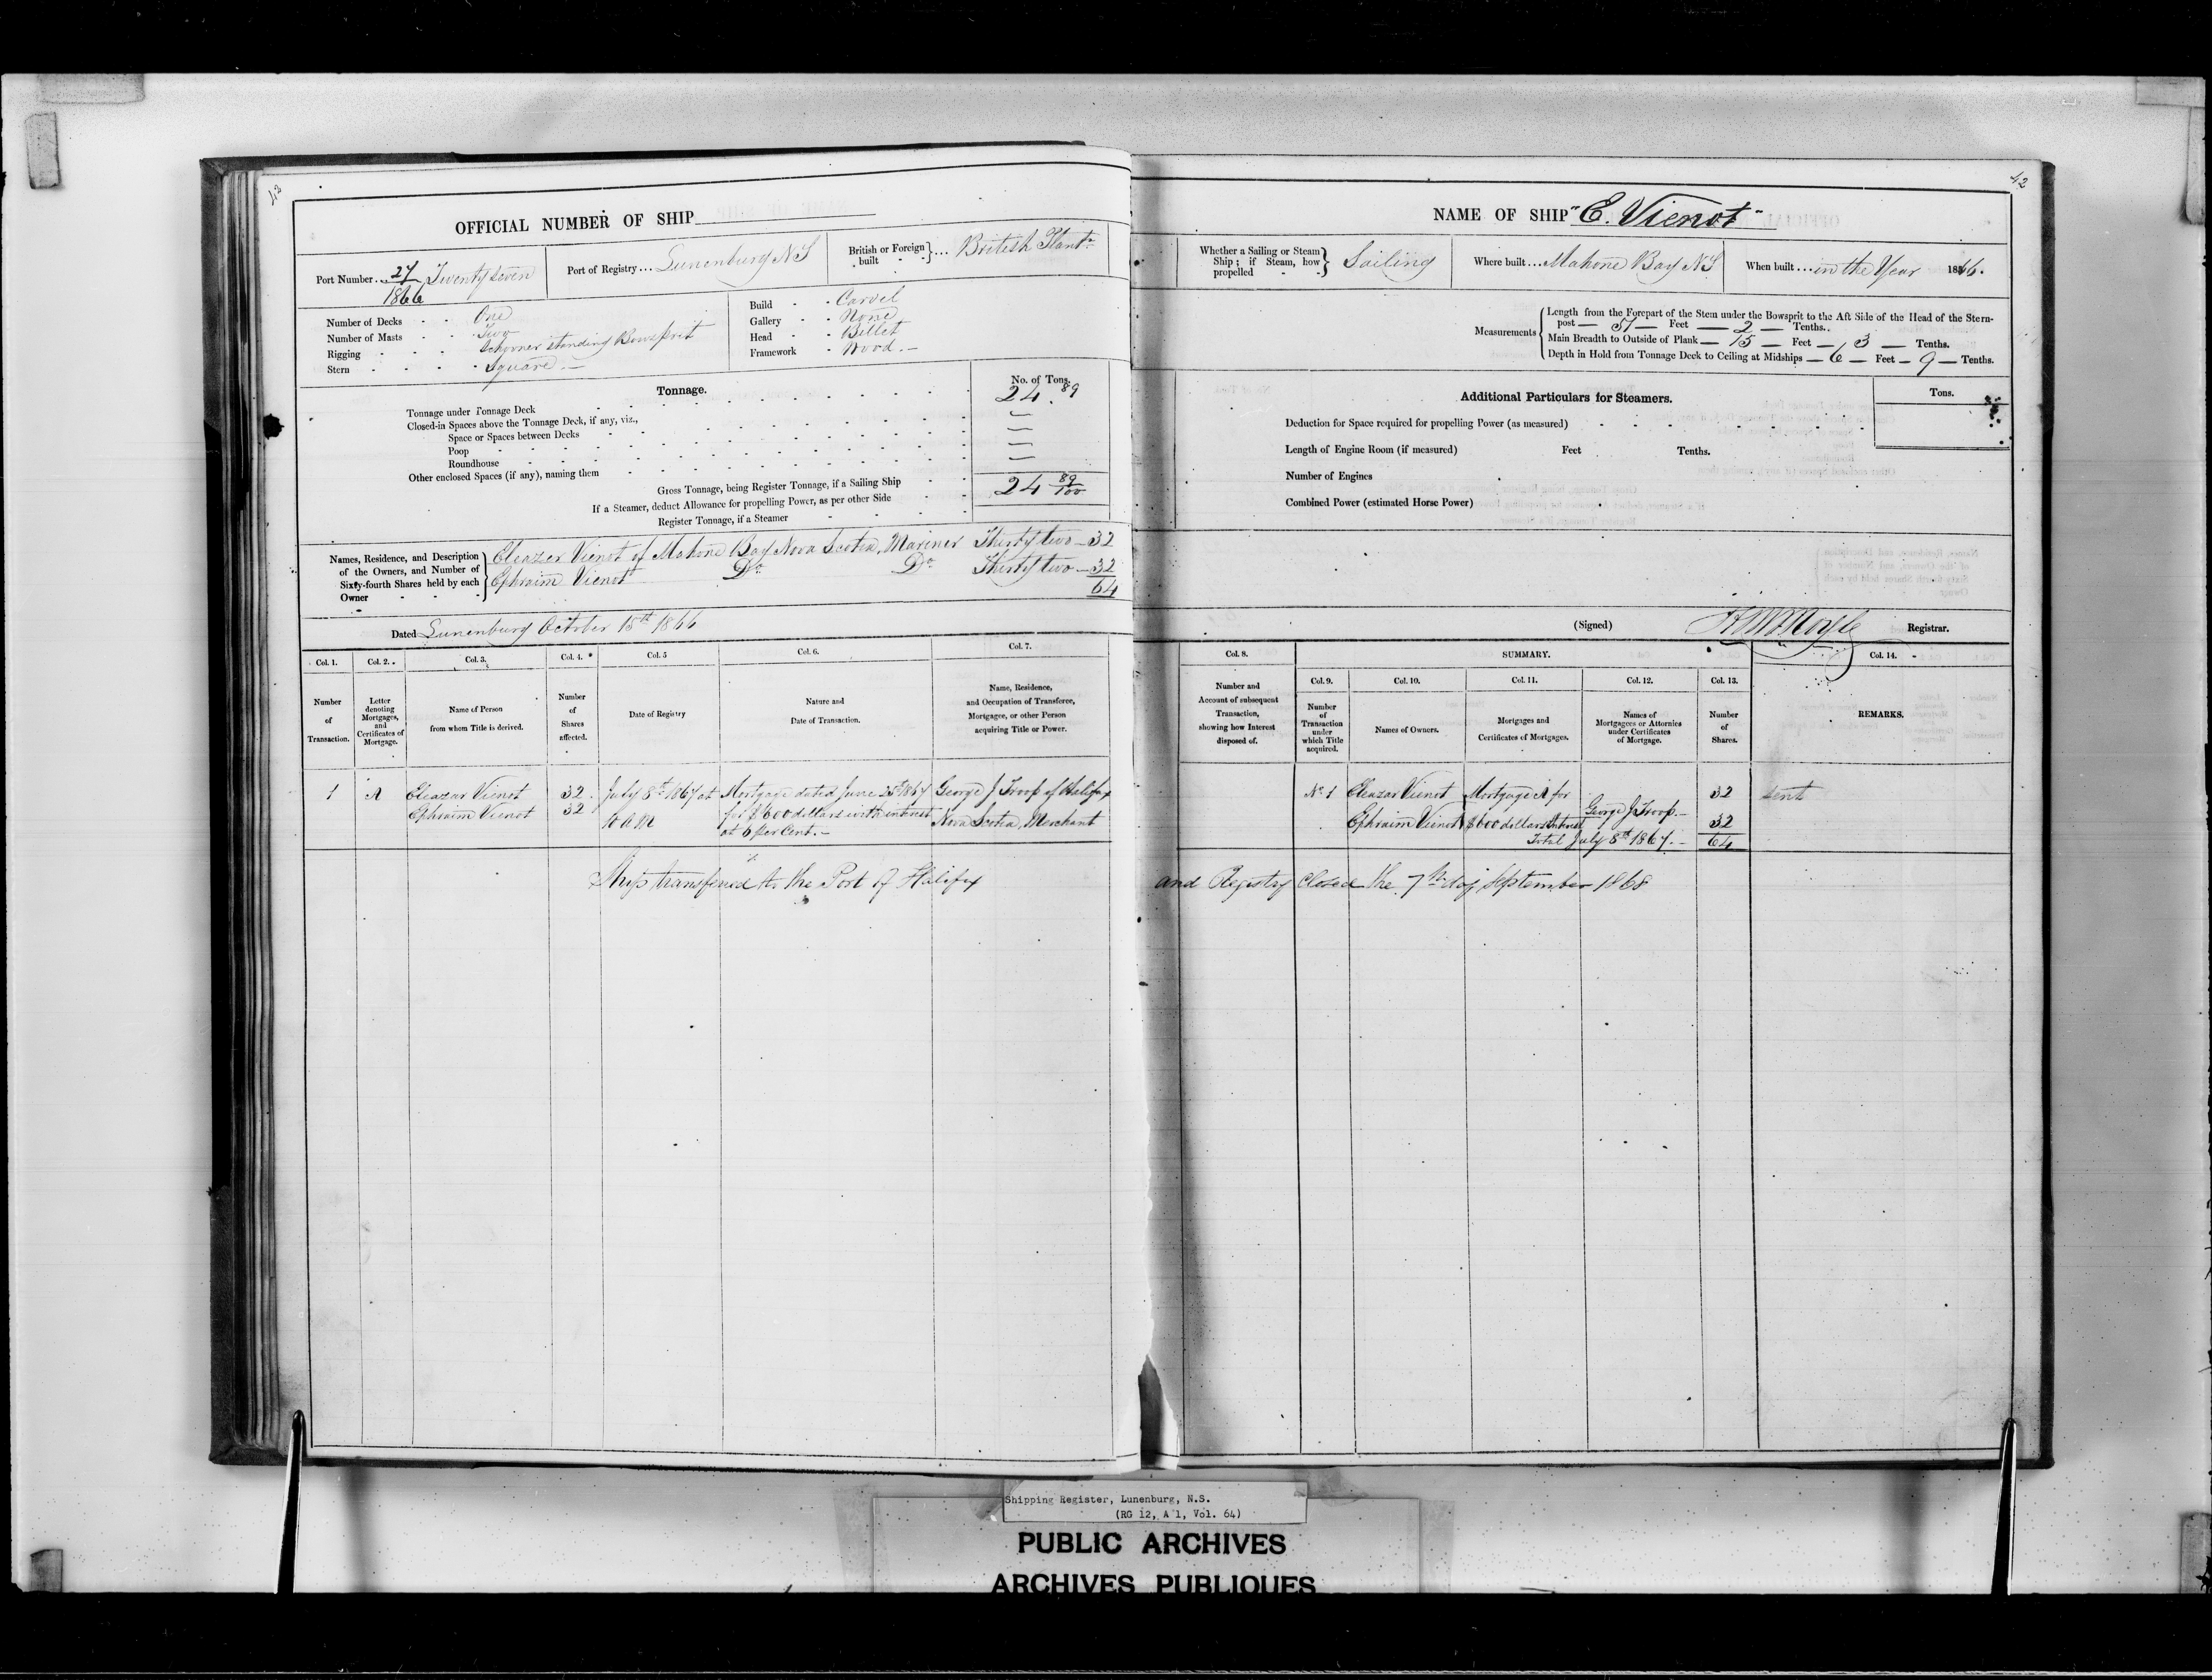 42
OFFICIAL NUMBER OF SHIP
Port Number... 27 Twenty Seven
1866
Port of Registry... Lunenburg N S
British or Foreign built } ... British Plantn
Number of Decks - - One
Number of Masts - - Two
Rigging - - Schooner standing Bowsprit
Stern - - - - Square.—
Build - - Carvel
Gallery - - None
Head - - Billet
Framework - Wood.—
Tonnage.
No. of Tons.
Tonnage under Tonnage Deck 24.89
Closed-in Spaces above the Tonnage Deck, if any, viz.,
Space or Spaces between Decks —
Poop —
Roundhouse —
Other enclosed Spaces (if any), naming them —
Gross Tonnage, being Register Tonnage, if a Sailing Ship 24 89/100
If a Steamer, deduct Allowance for propelling Power, as per other Side
Register Tonnage, if a Steamer
Names, Residence, and Description of the Owners, and Number of Sixty-fourth Shares held by each Owner - - - }
Eleazer Vienot of Mahone Bay Nova Scotia, Mariner Thirty two — 32
Ephraim Vienot Do Do Thirty two — 32
64
Dated Lunenburg October 15th 1866
Col. 1. Col. 2. Col. 3. Col. 4. Col. 5 Col. 6. Col. 7.
Number of Transaction.
Letter denoting Mortgages, and Certificates of Mortgage.
Name of Person from whom Title is derived.
Number of Shares affected.
Date of Registry
Nature and Date of Transaction.
Name, Residence, and Occupation of Transferee, Mortgagee, or other Person acquiring Title or Power.
1 A Eleazar Vienot 32 July 8th 1867 at Mortgage dated June 25th 1867 George J Troop of Halifax
Ephraim Vienot 32 A M for $600 dollars with interest Nova Scotia, Merchant
at 6 per Cent.—
Ship transfered to the Port of Halifax
42
NAME OF SHIP "E. Vienot"
Whether a Sailing or Steam Ship; if Steam, how propelled - - } Sailing
Where built... Mahone Bay N S
When built... in the Year 1866.
Measurements
Length from the Forepart of the Stem under the Bowsprit to the Aft Side of the Head of the Stern-
post — 51 — Feet — 2 — Tenths.
Main Breadth to Outside of Plank — 15 — Feet — 3 — Tenths.
Depth in Hold from Tonnage Deck to Ceiling at Midships — 6 — Feet — 9 — Tenths.
Additional Particulars for Steamers.
Tons.
Deduction for Space required for propelling Power (as measured)
Length of Engine Room (if measured) Feet Tenths.
Number of Engines
Combined Power (estimated Horse Power)
(Signed) Registrar.
Col. 8. SUMMARY. Col. 14.
Col. 9. Col. 10. Col. 11. Col. 12. Col. 13.
Number and Account of subsequent Transaction, showing how Interest disposed of.
Number of Transaction under which Title acquired.
Names of Owners.
Mortgages and Certificates of Mortgages.
Names of Mortgagees or Attornies under Certificates of Mortgage.
Number of Shares.
REMARKS.
No 1 Eleazar Vienot Mortgage A for 32 sent
Ephraim Vienot $600 dollars Interest George J Troop.— 32
Total July 8th 1867.— 64
and Registry Closed the 7th day September 1868
Shipping Register, Lunenburg, N.S.
(RG 12, A 1, Vol. 64)
PUBLIC ARCHIVES
ARCHIVES PUBLIQUES